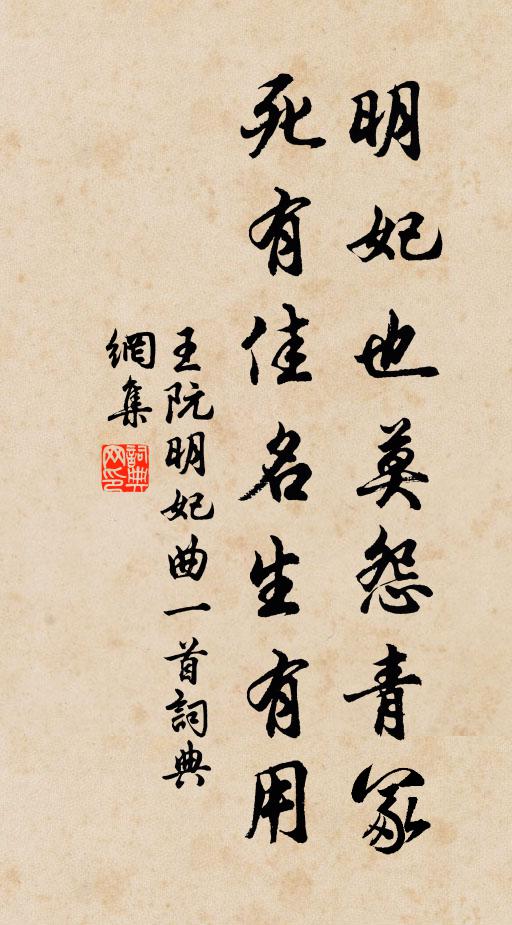 明妃也莫怨青冢
死有佳名生有用
王阮明妃曲一首詞典
網集
詞典
网印